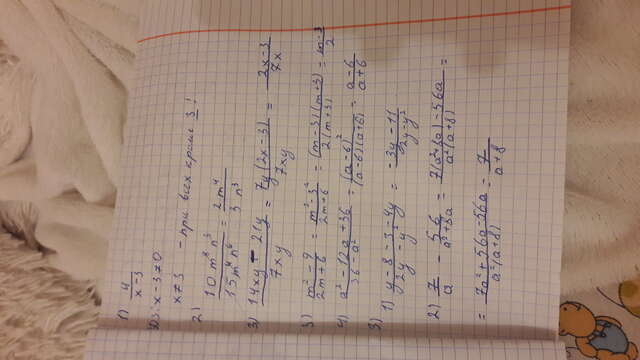 1) 4/(x-3)
ОДЗ: x-3≠0
x≠3 - при всех кроме 3!
2) 10m⁸n³/15m⁴n⁶ = 2m⁴/3n³
3) (14xy - 21y)/7xy = 7y(2x-3)/7xy = (2x-3)/7x
3) (m²-9)/(2m+6) = (m²-3²)/(2m+6) = (m-3)(m+3)/2(m+3) = (m-3)/2
4) (a²-12a+36)/(36-a²) = (a-6)²/(a-6)(a+6) = (a-6)/(a+6)
3) 1) (y-8-3-4y)/(y²2y-y²) = (-3y-11)/(2y-y²)
2) 7/a - 56/(a²+8a) = (7(a²+8a)-56a)/a(a+8) =
= (7a²+56a-56a)/a²(a+8) = 7/(a+8)